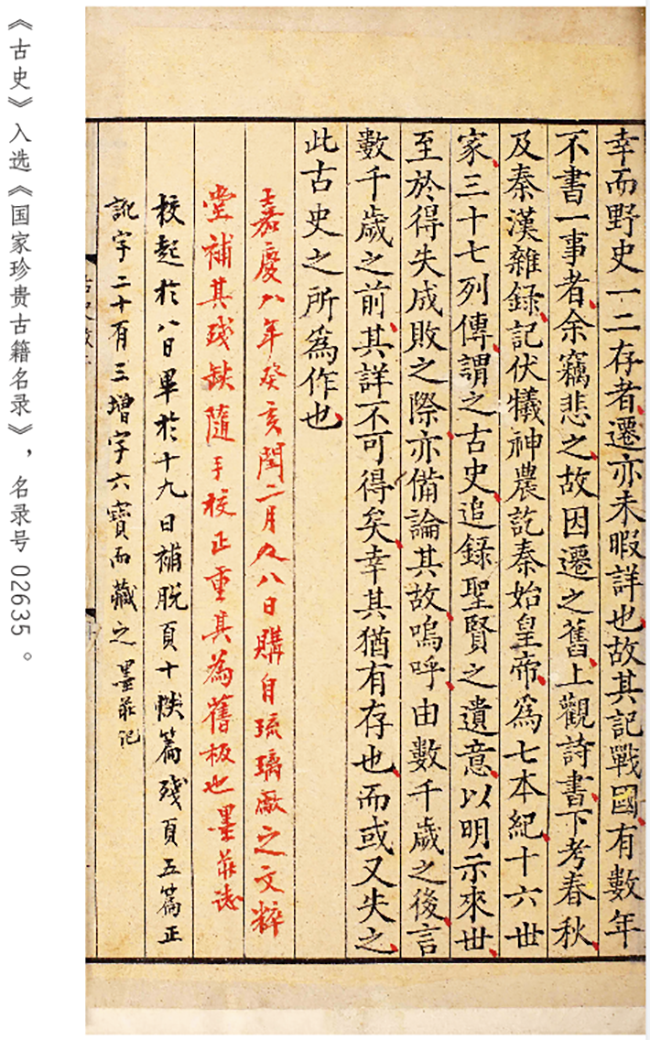 《古史》入选《国家珍贵古籍名录》，名录号 02635 。
幸而野史一二存者遷亦未暇詳也故其記戰國有數年
不書一事者余竊悲之故因遷之舊上觀詩書下考春秋
及秦漢雜錄記伏犧神農訖秦始皇帝爲七本紀十六世
家三十七列傳謂之古史追錄聖賢之遺意以明示來世
至於得失成敗之際亦備論其故嗚呼由數千歲之後言
數千歲之前其詳不可得矣幸其猶有存也而或又失之
此古史之所爲作也
嘉慶八年癸亥閏二月初八日購自琉璃廠之文粹
堂補其殘缺隨手校正重其為舊板也墨莊誌
校起於八日畢於十九日補脫頁十帙篇殘頁五篇正
訛字二十有三增字六寶而藏之墨莊記